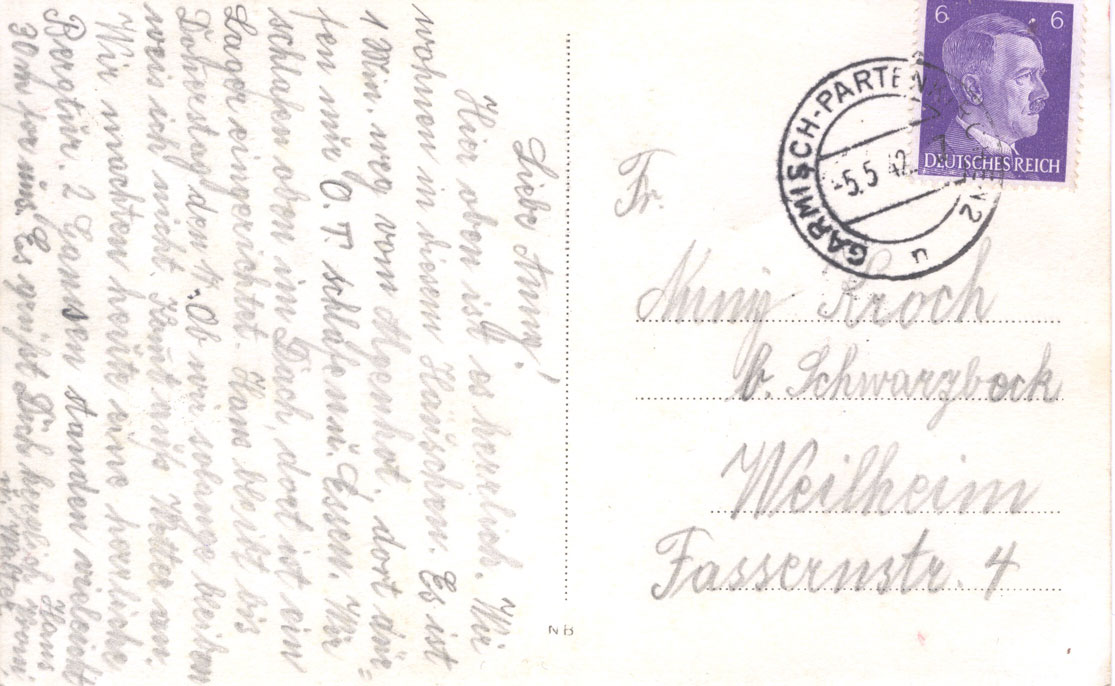 Liebe Anny!
Hier oben ist es herrlich. Wir
wohnen in diesem Häuschen. Es ist
1 Min. weg vom Alpenhot. dort dür=
fen nur O.T. schlafen u. Essen. Wir
schlafen oben im Dach, dort ist ein
Lager eingerichtet. Hans bleibt bis
Donerstag den 7. Ob wir solange bleiben
weis ich nicht. Kommt aufs Wetter an.
Wir machten heute eine herrliche
Bergtur. 2 Gamsen standen vieleicht
30 m vor uns. Es grüßt Dich herzlich Hans
6 6
DEUTSCHES REICH
GARMISCH-PARTENKIRCHEN 2
-5.5.42.-7
u
Fr.
Anny Kroch
b. Schwarzbeck
Weilheim
Fassernstr. 4
NB